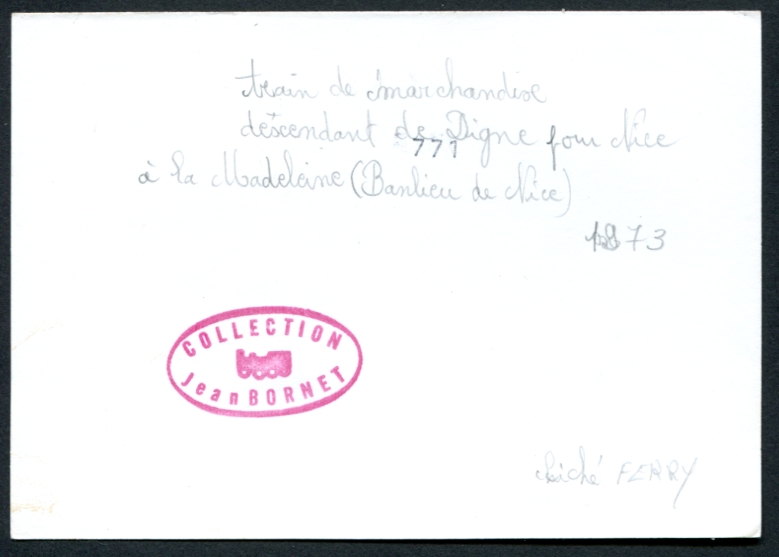 train de marchandise
descendant de Digne pour Nice
771
à la Madeleine (Banlieu de Nice)
1973
COLLECTION
Jean BORNET
cliché FERRY